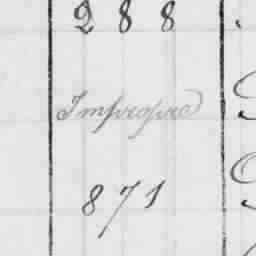 288
Impropre
871